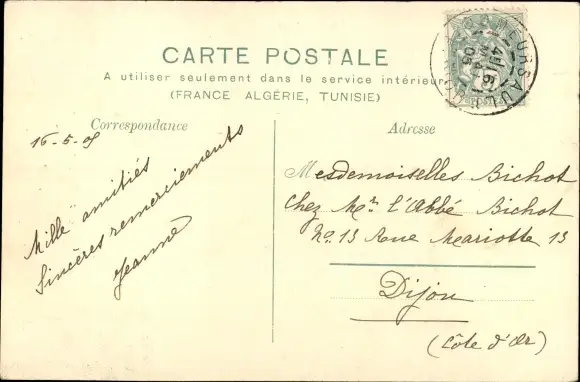 CARTE POSTALE
A utiliser seulement dans le service intérieur
(FRANCE ALGÉRIE, TUNISIE)
Correspondance
Adresse
16-5-05
Mille amitiés
Sincères remerciements
Jeanne
Mesdemoiselles Bichot
Chez Mr l'Abbé Bichot
No. 13 Rue Mariotte 13
Dijon
(Côte d'Or)